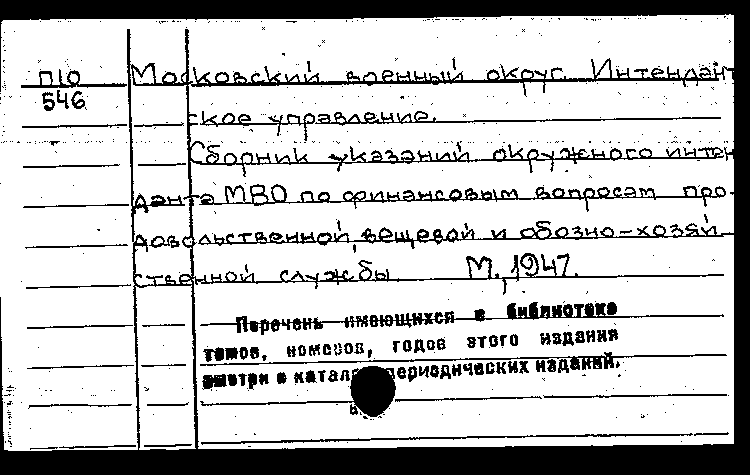 П10 Московский военный округ. Интендант
546
ское управление.
Сборник указаний окружного интен
данта МВО по финансовым вопросам про-
довольственной, вещевой и обозно-хозяй
ственной службы М., 1947.
Перечень имеющихся в библиотеке
томов, номеров, годов этого издания
смотри в периодических изданий.